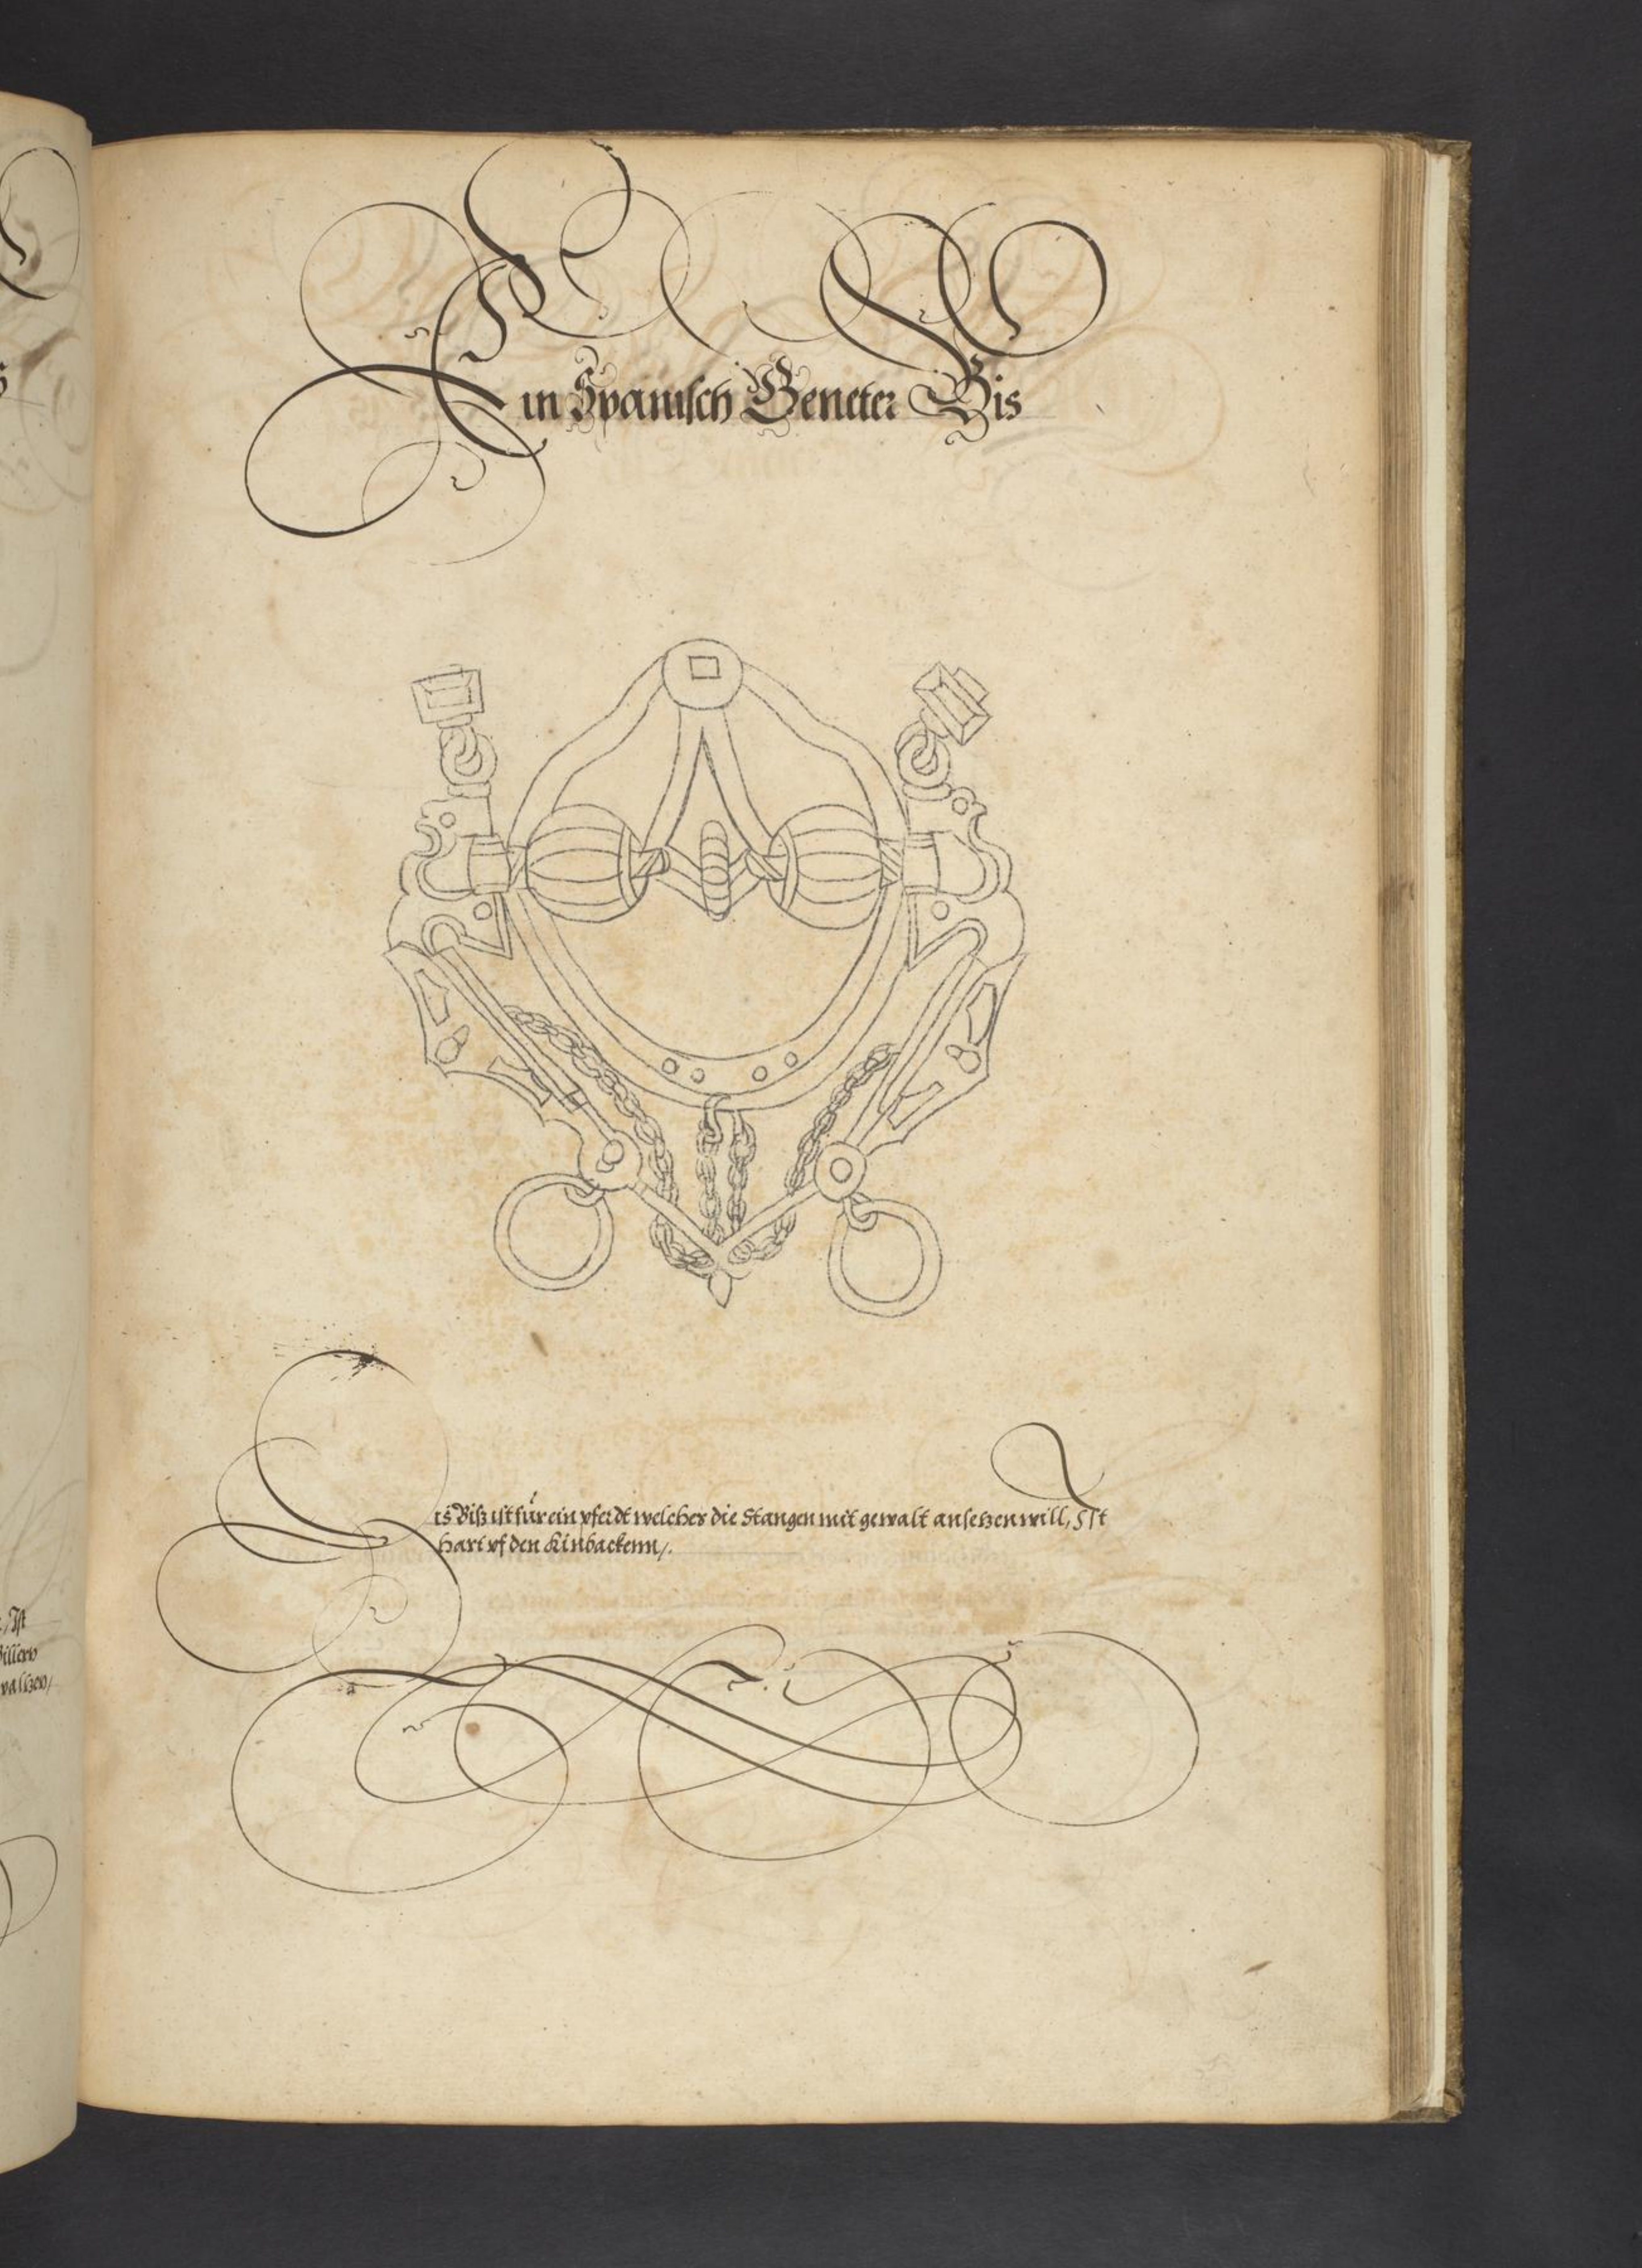 Ein Spanisch Geneter Bis
Dis Biß ist für ein pferdt welches die Stangen mit gewalt ansetzen will, Ist
hart vf den Kinbackenn/.
/Ist